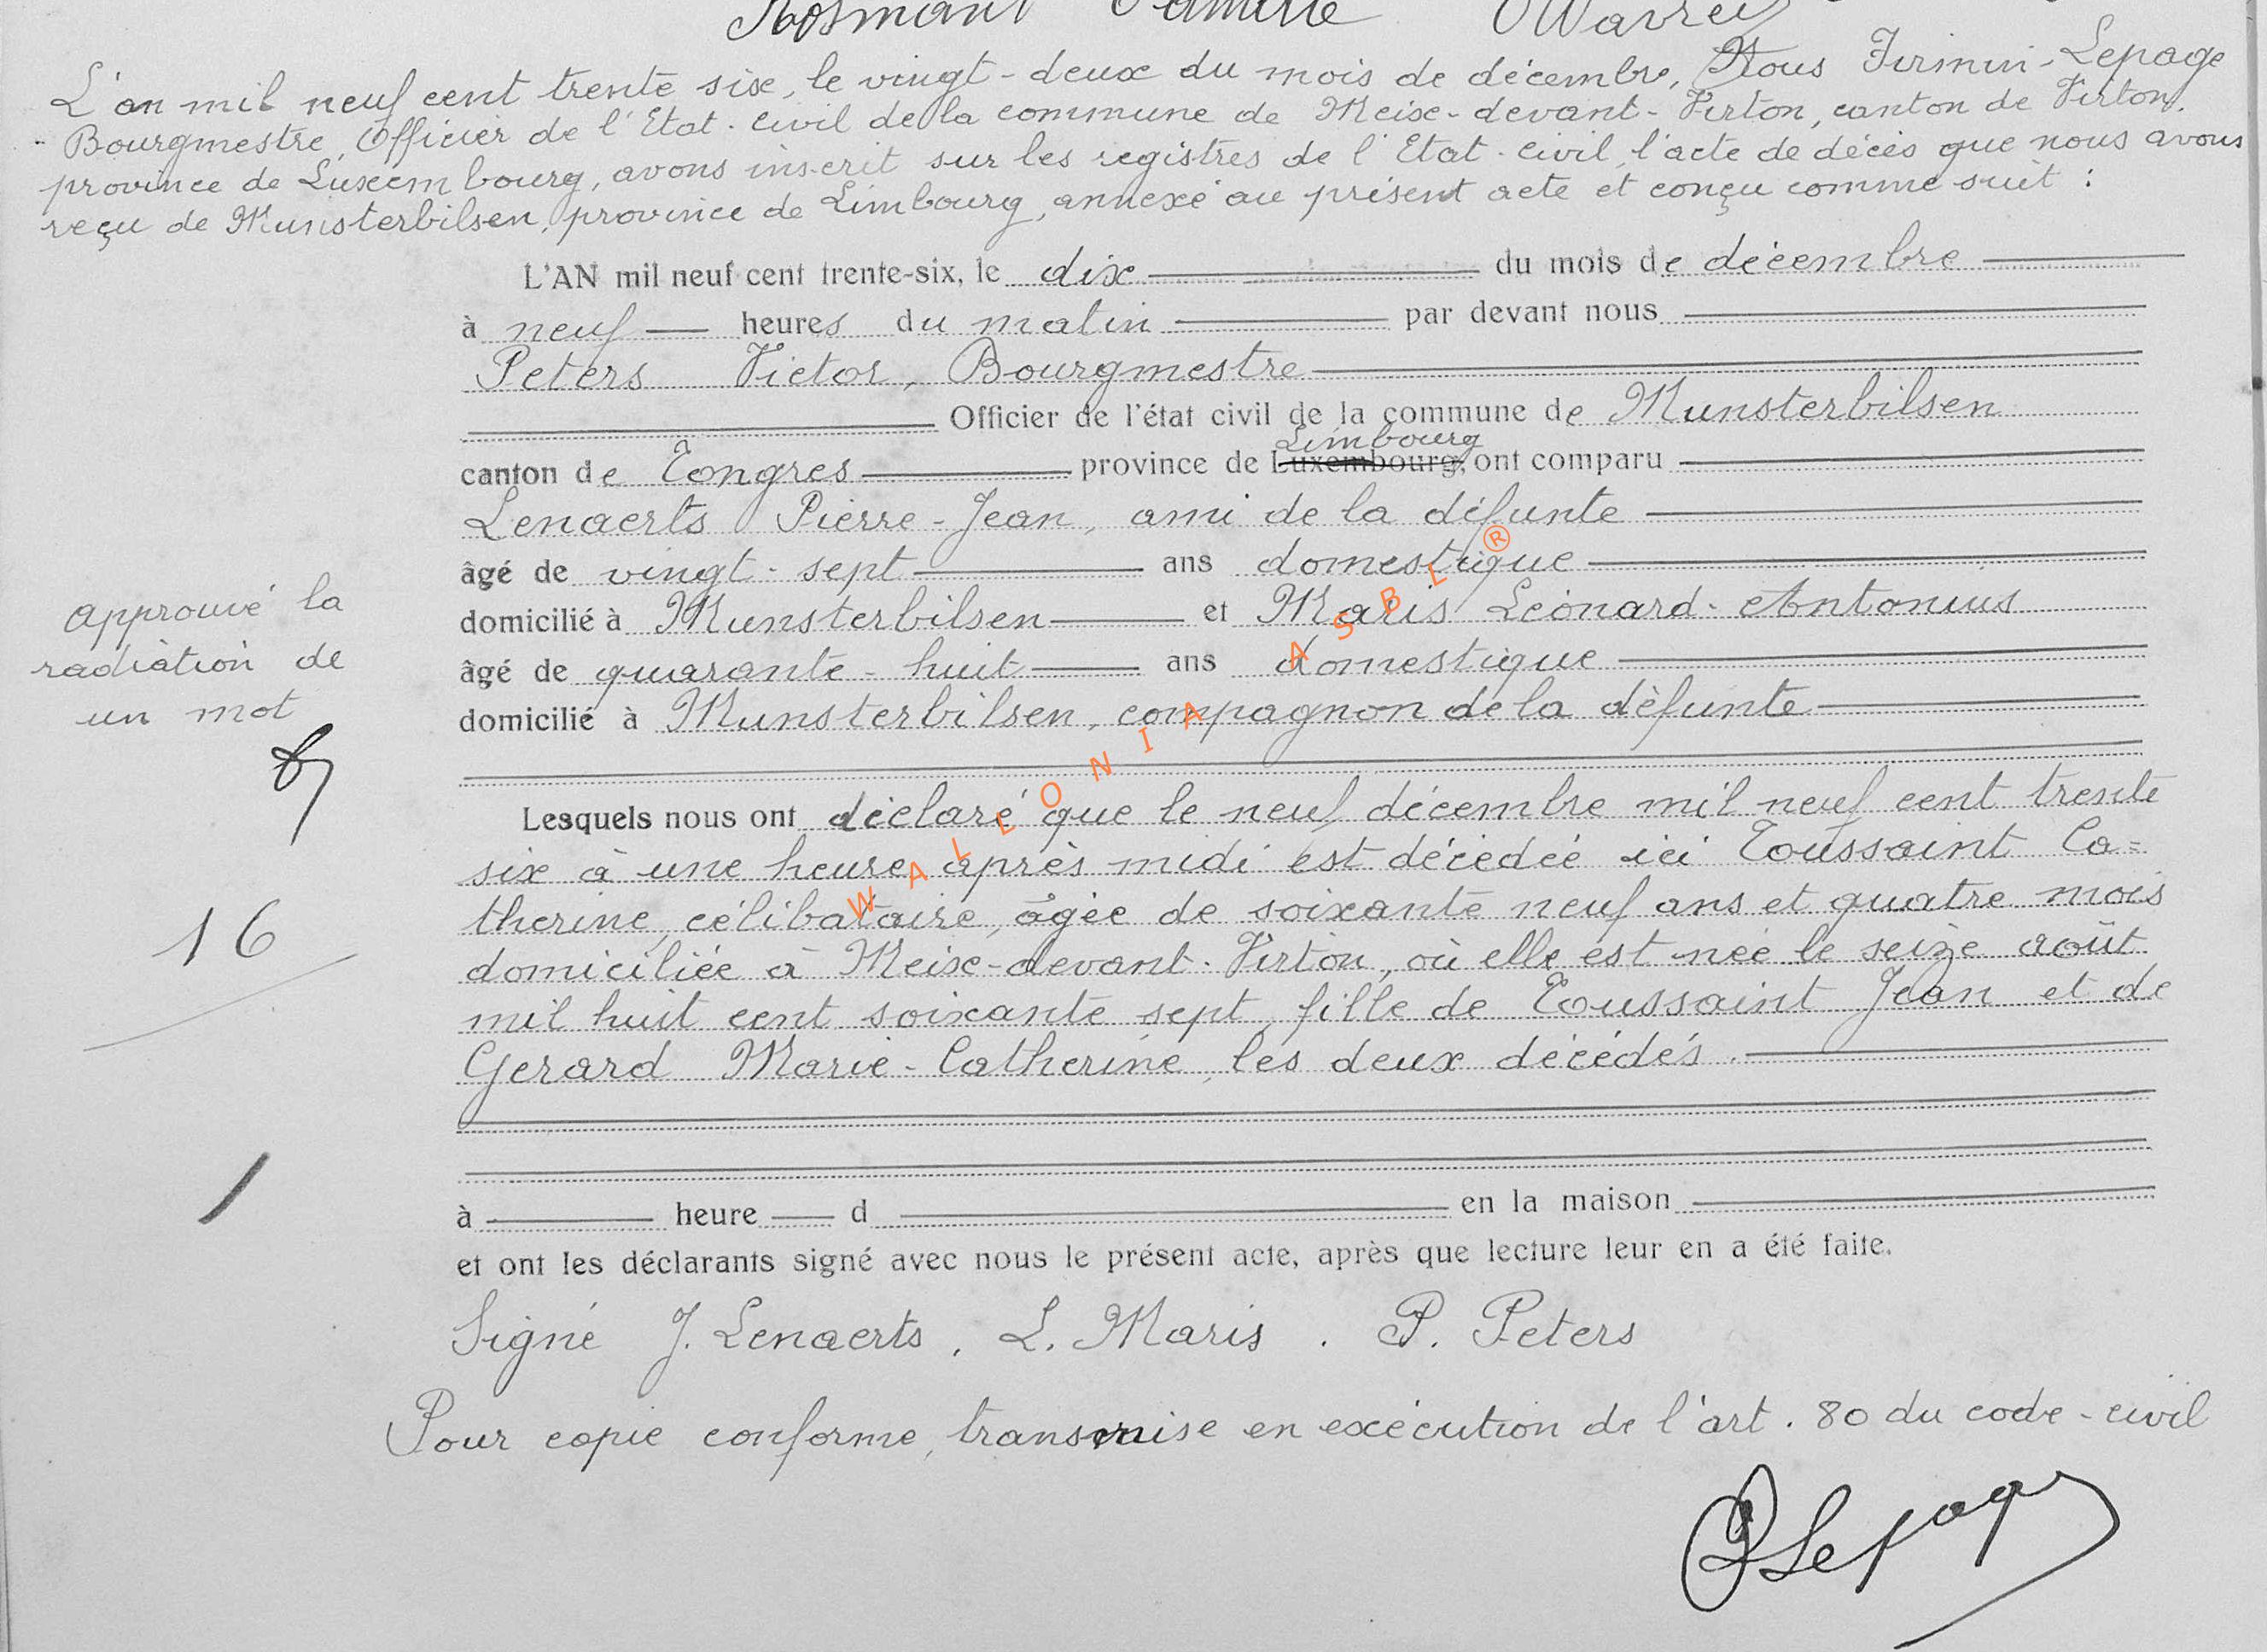 Rosmant Camille Wavreil
L'an mil neuf cent trente six, le vingt-deux du mois de décembre, Nous Firmin-Lepage
Bourgmestre, Officier de l'Etat-civil de la commune de Meix-devant-Virton, canton de Virton.
province de Luxembourg, avons inscrit sur les registres de l'Etat-civil, l'acte de décès que nous avons
reçu de Munsterbilsen, province de Limbourg, annexé au présent acte et conçu comme suit :
L'AN mil neuf cent trente-six, le dix du mois de décembre
à neuf heures du matin par devant nous
Peters Victor, Bourgmestre
Officier de l'état civil de la commune de Munsterbilsen
Limbourg
canton de Tongres province de Luxembourg, ont comparu
Lenaerts Pierre-Jean, ami de la défunte
âgé de vingt-sept ans domestique
domicilié à Munsterbilsen et Maris Léonard-Antonius
âgé de quarante-huit ans domestique
domicilié à Munsterbilsen, compagnon de la défunte
approuvé la
radiation de
un mot
Lesquels nous ont déclaré que le neuf décembre mil neuf cent trente
six à une heure après midi est décédée ici Toussaint Ca=
therine, célibataire, âgée de soixante neuf ans et quatre mois
domiciliée à Meix-devant-Virton, où elle est née le seize août
mil huit cent soixante sept, fille de Toussaint Jean et de
Gerard Marie-Catherine, les deux décédés.
16
1
à heure d en la maison
et ont les déclarants signé avec nous le présent acte, après que lecture leur en a été faite.
Signé J. Lenaerts, L. Maris. P. Peters
Pour copie conforme, transmise en exécution de l'art. 80 du code-civil
Lepage
WALLONIA ASBL ®